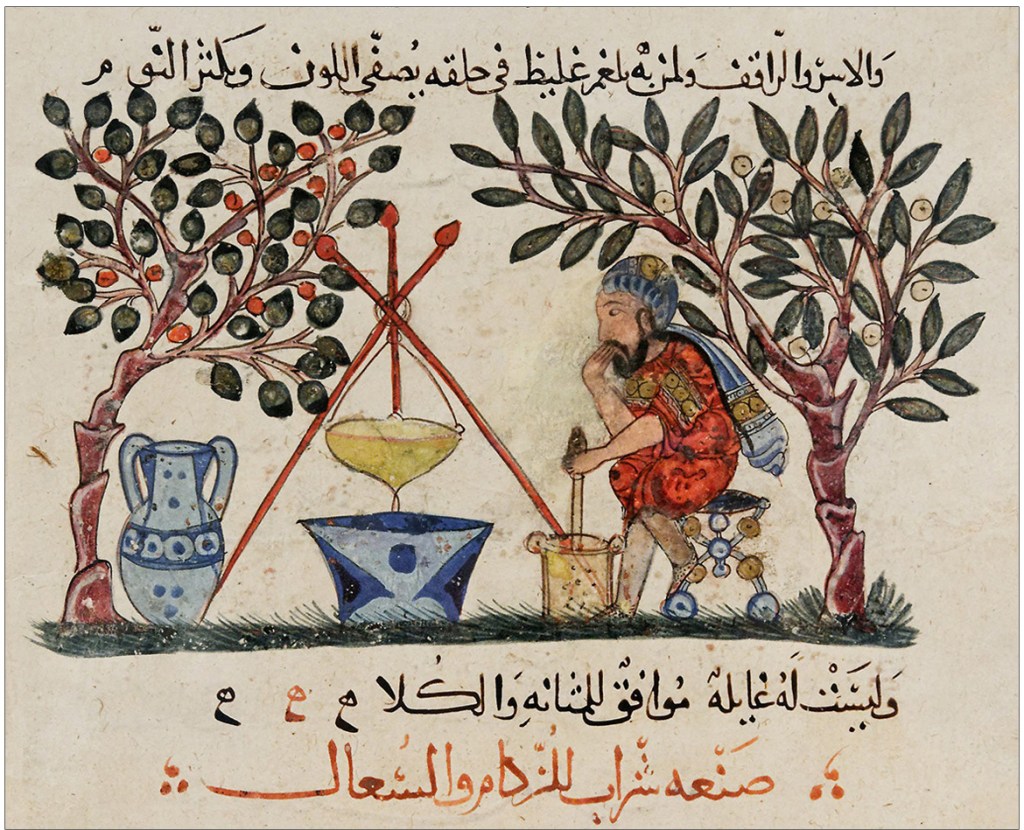 والابن والزاقف ولمن به بلغم غليظ في حلقه يصفي اللون ويكثر النوم
وليست له غايلة موافق للمثانه والكلا ح ح ح
صنعه شراب للزكام والسعال